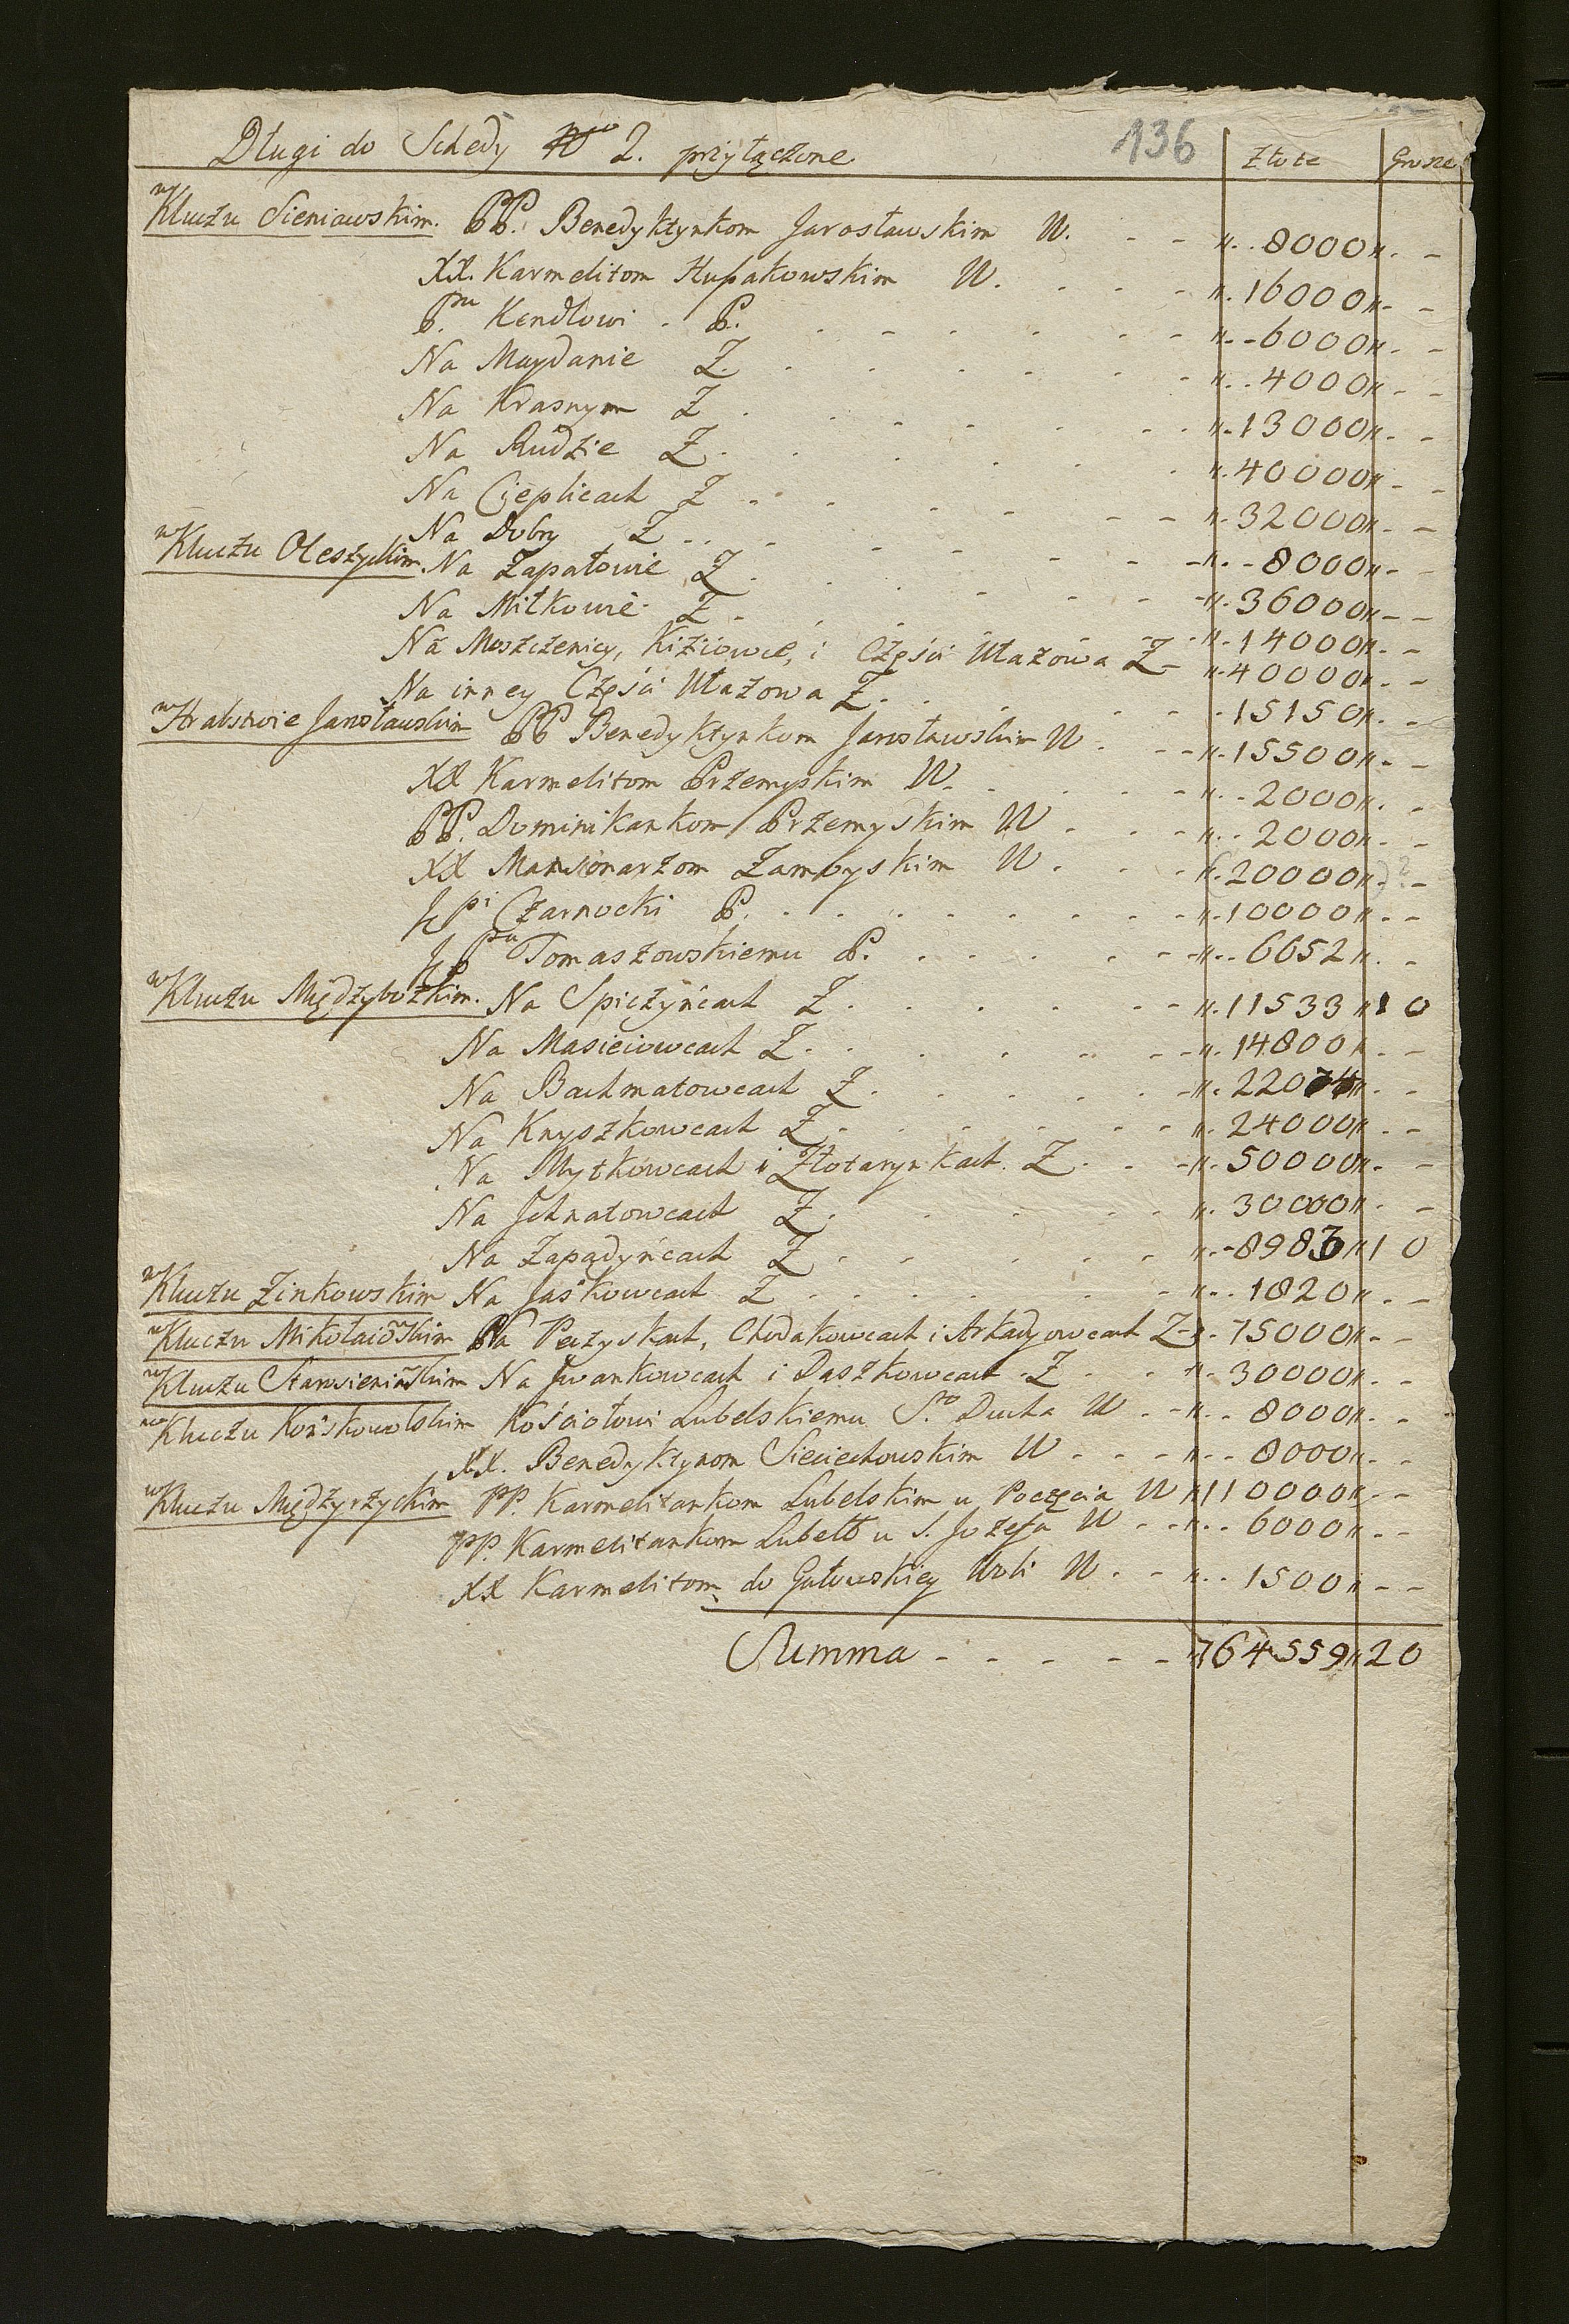 136
Długi do Schedy No 2. przyłączone Złote Grosze
w Kluczu Sieniawskim. PP. Benedyktynkom Jarosławskim W. 8000
XX. Karmelitom W. 16000
P.nu Kendlowi P. 6000
Na Maydanie Z. 4000
Na Krasnym Z 13000
Na Rudzie Z. 40000
Na Cieplicach Z 32000
Na Dobry Z 8000
w Kluczu Oleszyckim. Na Zapałowie Z 36000
Na Miłkowie Z 14000
Na Moszczenicy, Kiziowce, i CzęściUłazowa Z 40000
Na inney Części Ułazowa Z. 15150
w Hrabstwie Jarosławskim PP Benedyktynkom Jarosławskim W 15500
XX Karmelitom Przemyskim W. 2000
PP. Dominikankom Przemyskim W 2000
XX Mansionarzom Zamoyskim W. 20000
Czarnocki P. 10000
Tomaszowskiemu P. 6652
w Kluczu Międzybozkim. Na Spiczyńcach Z 11533 10
Na Masieiowcach Z. 14800
Na Bachmatowcach Z. 22074
Na Knyszkowcach Z 24000
Na Mytkowcach i Złotarynkach. Z 50000
Na Jchnatowcach Z 30000
Na Zapadyńcach Z 8983 10
w Kluczu Zinkowskim Na Jaśkowcach Z 1820
w Kluczu Mikołaiowskim Na Peczyskach, Chodakowcach i Arkadyowcach Z 75000
w Kluczu Starosieniawskim Na Jwankowcach i Daszkowcach Z 30000
w Kluczu Końskowolskim Kościołowi Lubelskiemu S.go Ducha W 8000
XX. Benedyktynom Sieciechowskim W 8000
w Kluczu Międzyrzyckim PP. Karmelitankom Lubelskim u Poczęcia W 110000
PP. Karmelitankom Lubels u S. Jozefa W 6000
XX Karmelitom do Gułowskiey Woli W. 1500
Summa 764559 20